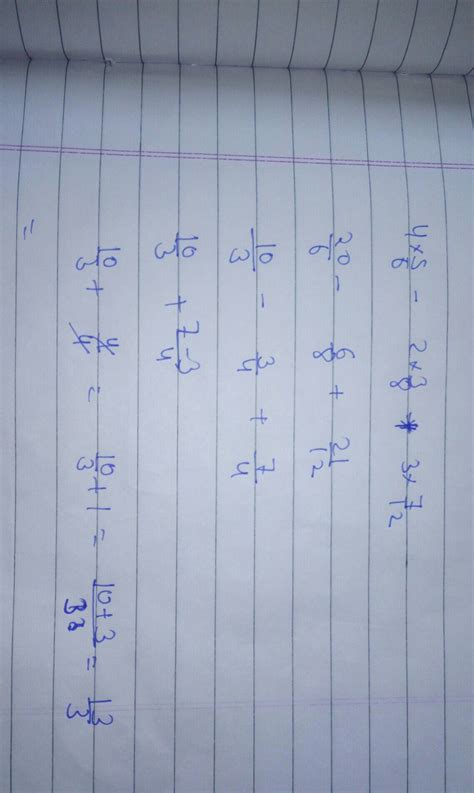 4×5/6 - 2×3/8 + 3×7/12
20/6 - 6/8 + 21/12
10/3 - 3/4 + 7/4
10/3 + 7-3/4
10/3 + 4/4 = 10/3 + 1 = 10+3/3 = 13/3
=